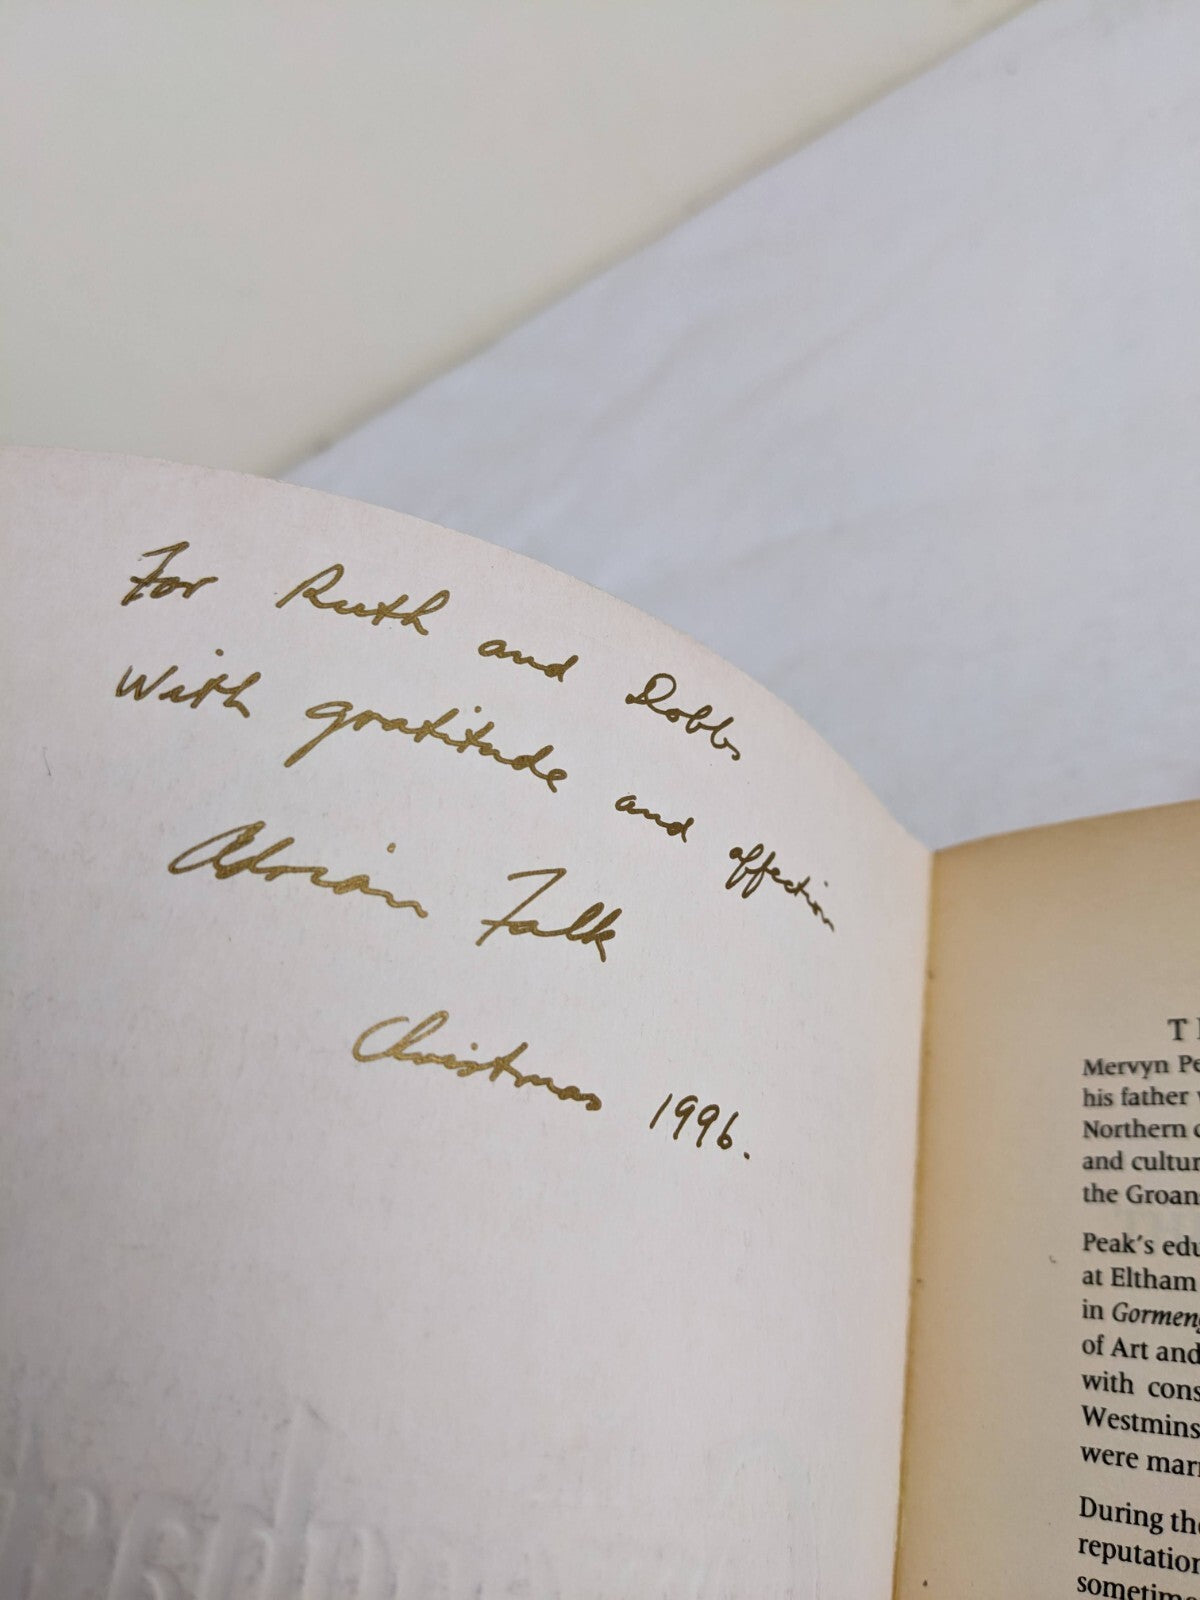 For Ruth and Dobbs
With gratitude and affection
Adrian Falk
Christmas 1996.
T
Mervyn Pe
his father
Northern
and cultur
the Groan
Peak's edu
at Eltham
in Gormeng
of Art and
with cons
Westmins
were marr
During the
reputation
sometime